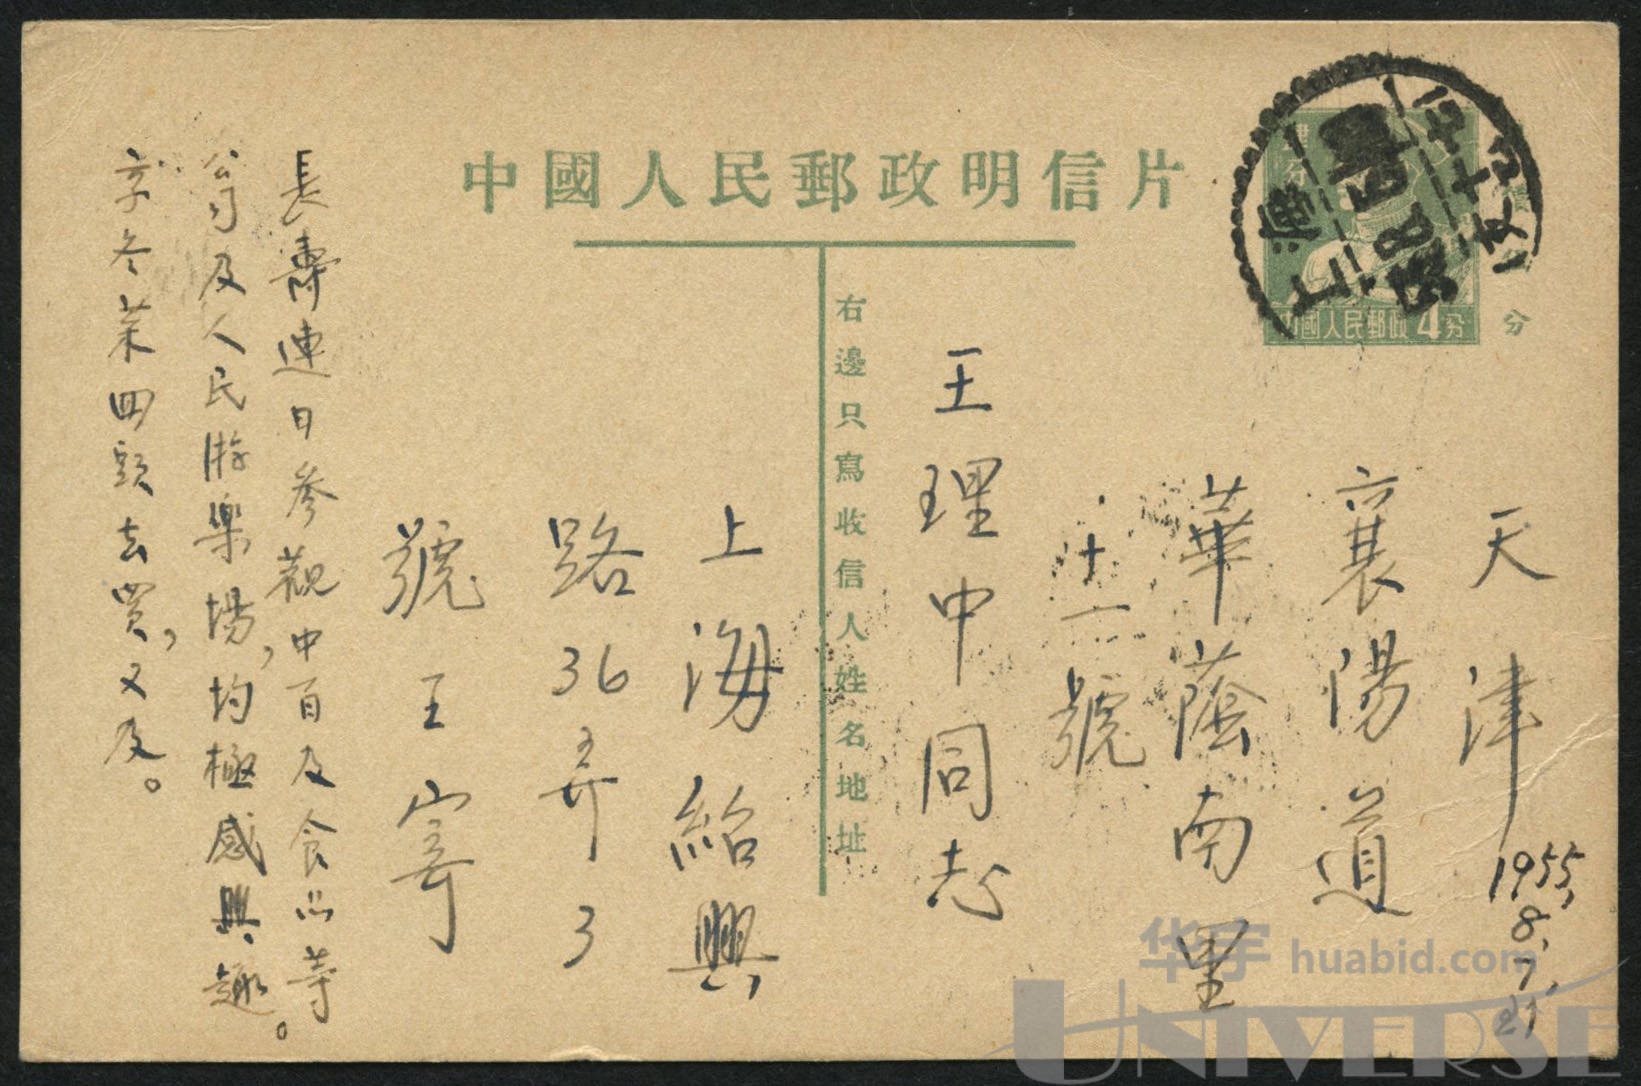 中國人民郵政明信片
中國人民郵政 4分
分
右邊只寫收信人姓名地址
天津
襄陽道
華蔭南里
十一號
王理中同志
1955,
8,
7,
上海紹興
路36弄3
號王寄
長壽連日參觀中百及食品等
公司及人民游樂場,均極感興趣。
京冬菜四頭去買,又及。
上海
华宇 huabid.com
UNIVERSE